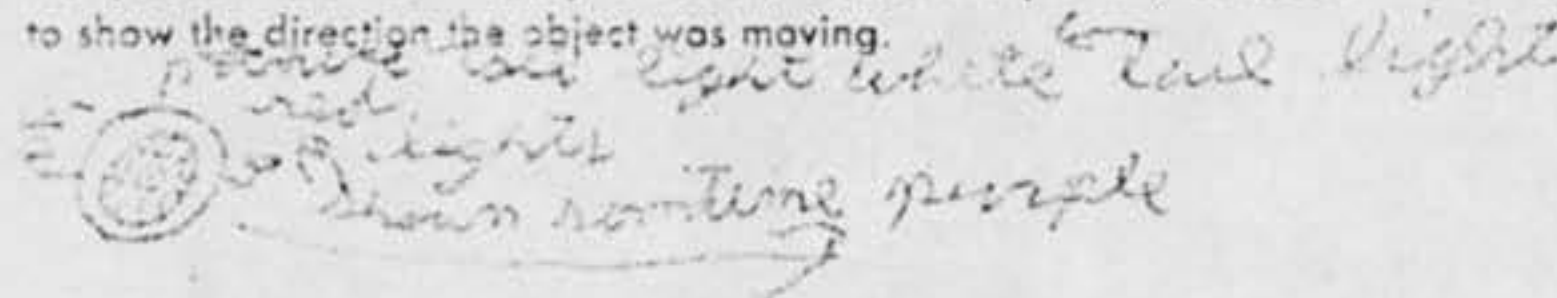 to show the direction the object was moving.
light white tail light
red
lights
shown somtime purple